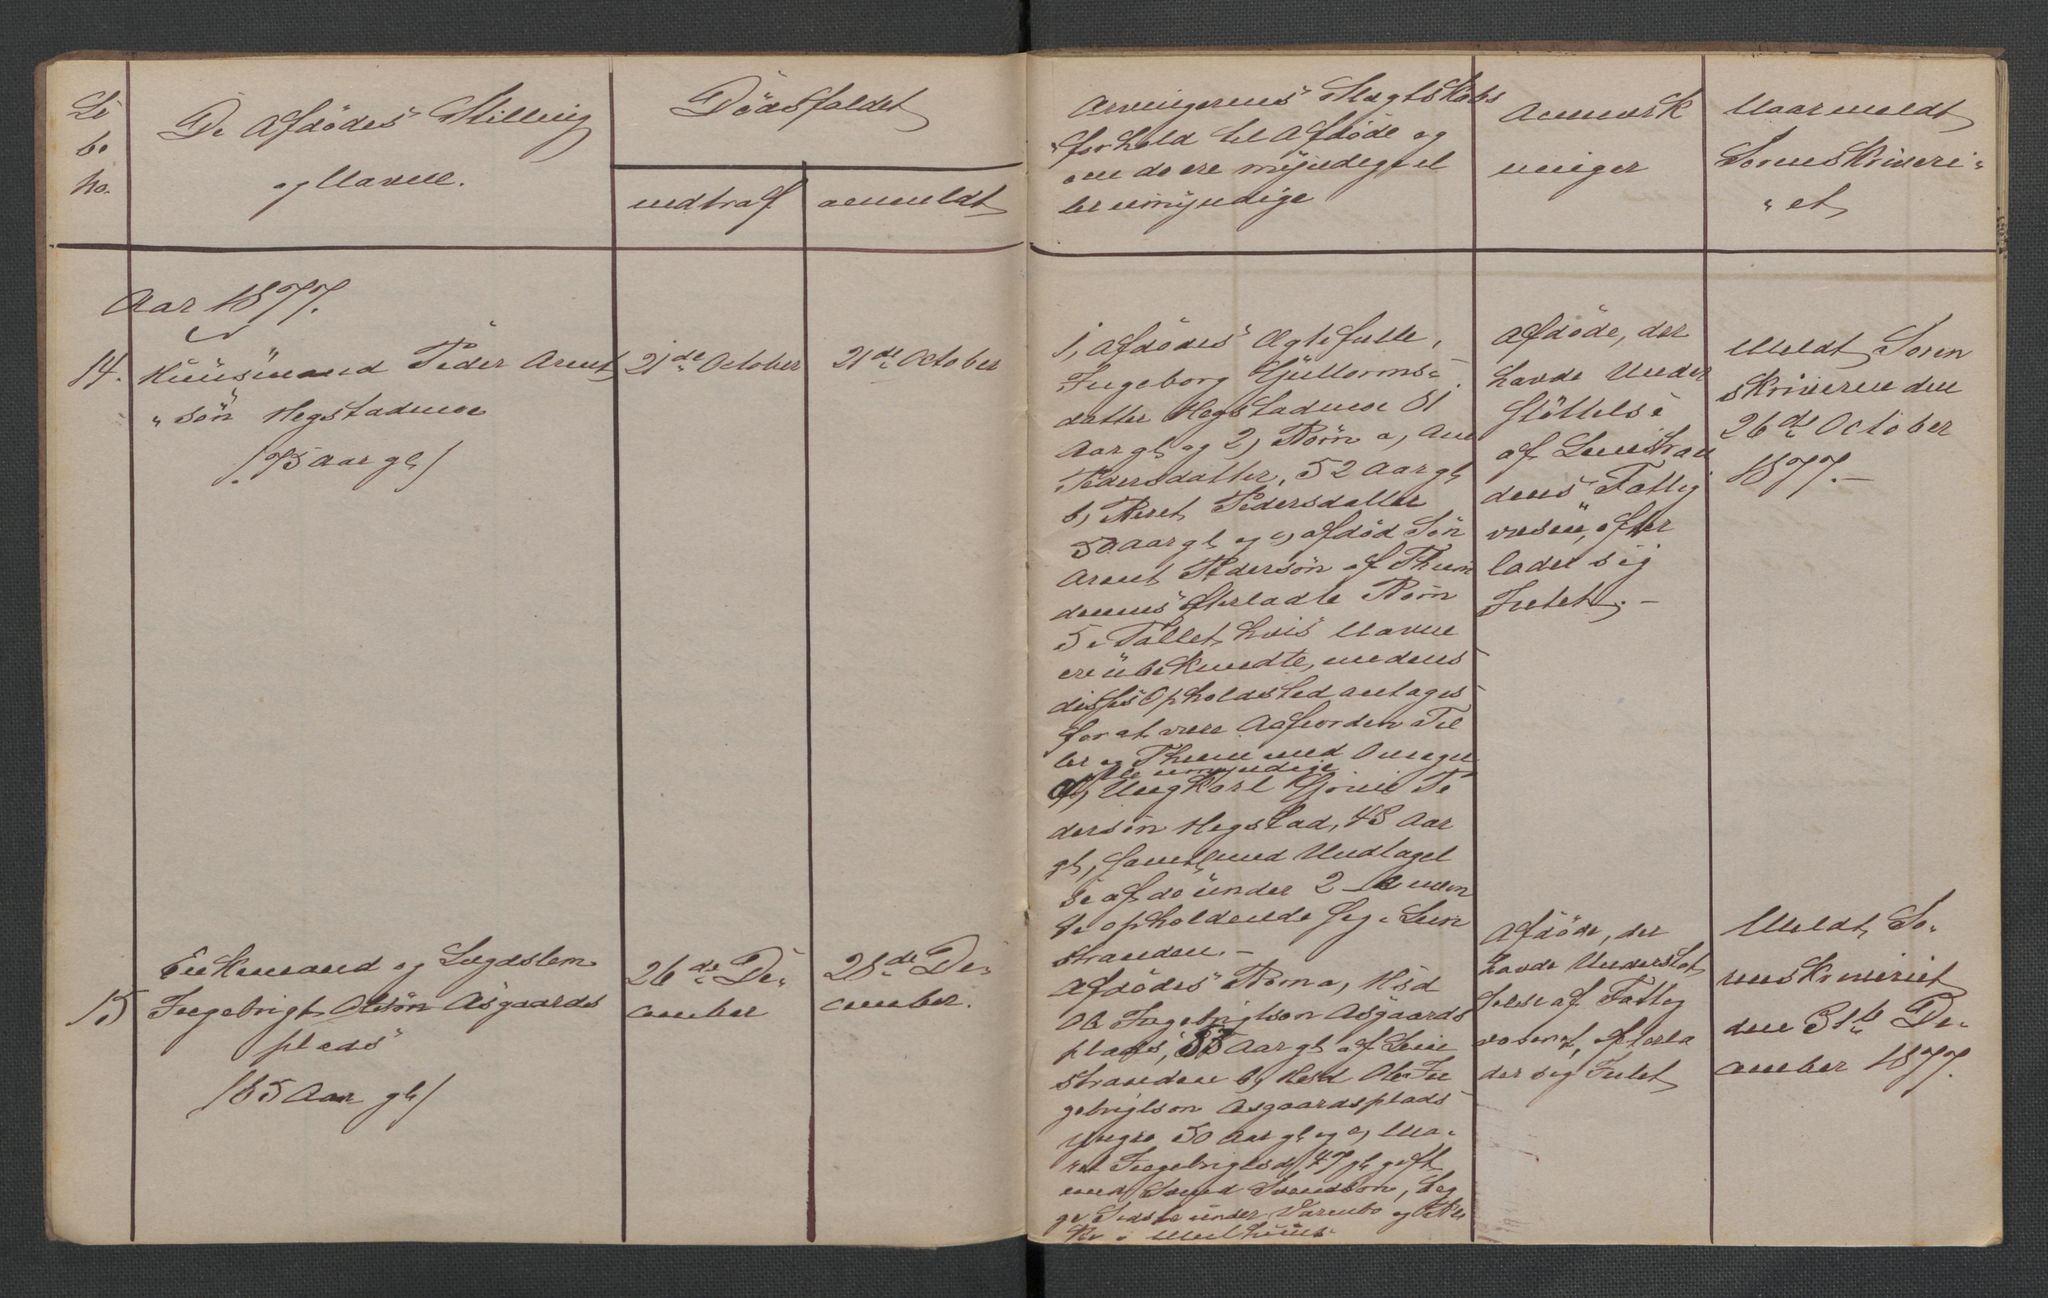 Lö
be
No.
De Afdødes Stilling
og Navne.
Dødsfaldet
indtraf
anmeldt
Arvingernes Slægtskabs
forhold til Afdøde og
om de ere myndige el
ler umyndige
Anmærk
ninger
Naar meldt
Sorenskriveri-
"et
Aar 1877.
14.
Huusmand Peder Arnt
"søn Hegstadmoe
/75 Aar gl/
21de October
21de October
1, Afdødes Ægtefælle,
Ingeborg Guttorms-
datter Hegstadmoe 81
Aar gl og 2, Børn a, Ane
Pedersdatter, 52 Aar gl
b, Beret Pedersdatter
50 Aar gl og c, afdød Søn
Arent Pedersøn af
efterladte Børn
5 i Tallet hvis Navne
ere übekundte, medens
disses Opholdsted antages
for at være Aafjorden Til
ler og med Omegn
alle umyndige
d, Ungkarl Pe
dersøn Hegstad, 48 Aar
gl, samtl med Undtagel
se af de under 2
opholdende sig i Lein
stranden.-
Afdøde, der
havde Under
støttelse
af Leinstran
dens Fattig
væsen, efter
lader sig
Intet.-
Meldt Soren
skriveren den
26de October
1877.-
15
Enkemand og Lægdslem
Ingebrigt Olsøn Asgaards
plads
/85 Aar gl/
26de De-
cember
28de De-
cember.
Afdødes Børn a, Hsd
Ole Ingebrigtson Asgaards
plads, 53 Aar gl af Lein
stranden b, Hsd Ole In
gebrigtson Asgaardsplads
yngre 50 Aar gl og c, Ma-
rit Ingebrigtsd 47 gl gift
med Svend Svendson, beg
ge Sidste under og
i Melhuus
Afdøde, der
havde Understøt
telse af Fattig
væsenet, efterla
der sig Intet
Meldt So-
renskriveriet
den 31te De-
cember 1877.